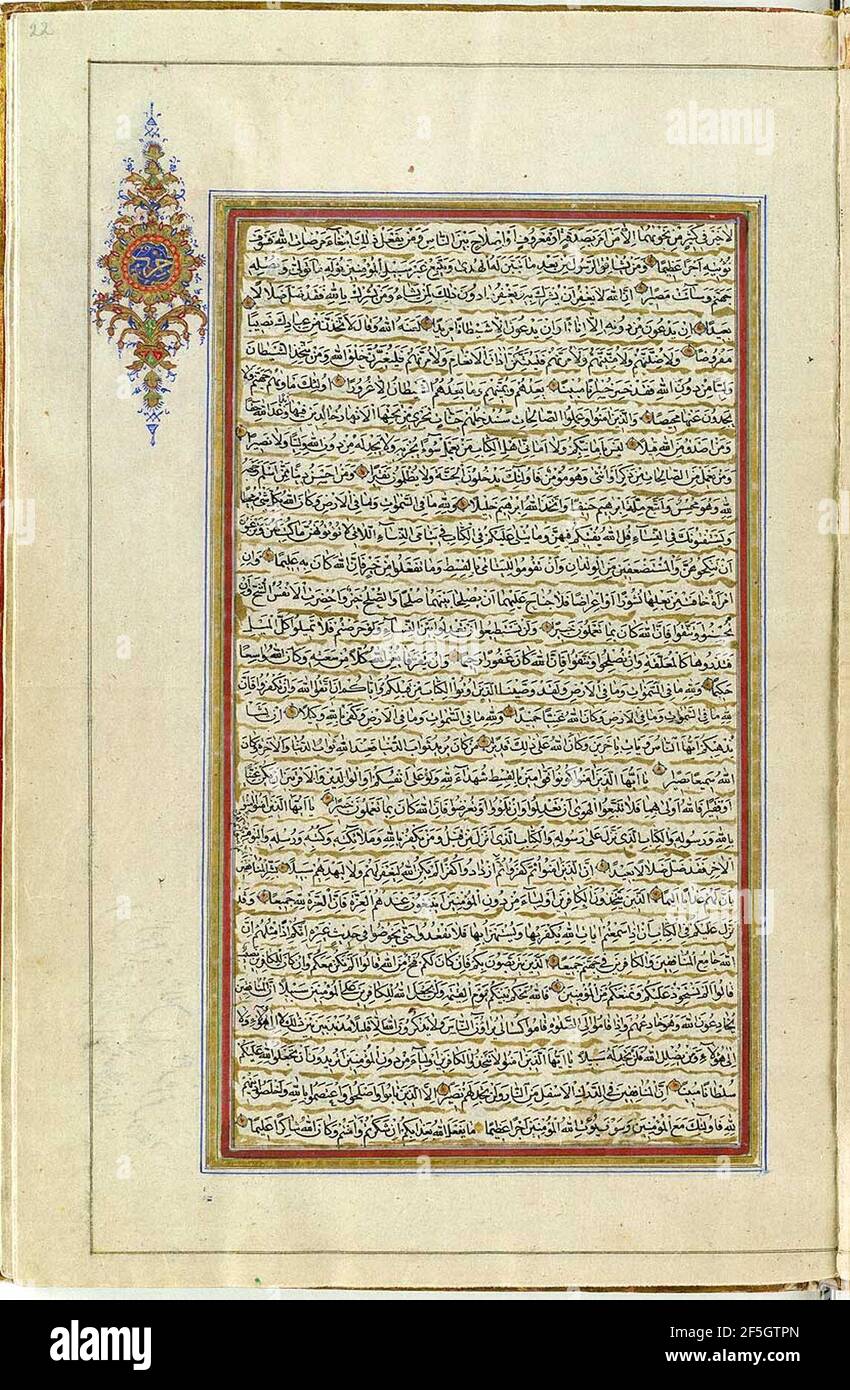 22
حزب
لا خَيْرَ في كَثيرٍ مِنْ نَجْويهُمْ اِلّا مَنْ اَمَرَ بِصَدَقَةٍ اَوْ مَعْرُوفٍ اَوْ اِصْلاحٍ بَيْنَ النّاسِ وَمَنْ يَفْعَلْ ذلِكَ ابْتِغاءَ مَرْضاتِ اللهِ فَسَوْفَ
نُؤْتيهِ اَجْرًا عَظيمًا وَمَنْ يُشاقِقِ الرَّسُولَ مِنْ بَعْدِ ما تَبَيَّنَ لَهُ الْهُدى وَيَتَّبِعْ غَيْرَ سَبيلِ الْمُؤْمِنينَ نُوَلِّهِ ما تَوَلّى وَنُصْلِهِ
جَهَنَّمَ وَساءَتْ مَصيرًا اِنَّ اللهَ لا يَغْفِرُ اَنْ يُشْرَكَ بِهِ وَيَغْفِرُ ما دُونَ ذلِكَ لِمَنْ يَشاءُ وَمَنْ يُشْرِكْ بِاللهِ فَقَدْ ضَلَّ ضَلالًا
بَعيدًا اِنْ يَدْعُونَ مِنْ دُونِهِ اِلّا اِناثًا وَاِنْ يَدْعُونَ اِلّا شَيْطانًا مَريدًا لَعَنَهُ اللهُ وَقالَ لَاَتَّخِذَنَّ مِنْ عِبادِكَ نَصيبًا
مَفْرُوضًا وَلَاُضِلَّنَّهُمْ وَلَاُمَنِّيَنَّهُمْ وَلَاٰمُرَنَّهُمْ فَلَيُبَتِّكُنَّ اٰذانَ الْاَنْعامِ وَلَاٰمُرَنَّهُمْ فَلَيُغَيِّرُنَّ خَلْقَ اللهِ وَمَنْ يَتَّخِذِ الشَّيْطانَ
وَلِيًّا مِنْ دُونِ اللهِ فَقَدْ خَسِرَ خُسْرانًا مُبينًا يَعِدُهُمْ وَيُمَنّيهِمْ وَما يَعِدُهُمُ الشَّيْطانُ اِلّا غُرُورًا اُولئِكَ مَأْويهُمْ جَهَنَّمُ وَلا
يَجِدُونَ عَنْها مَحيصًا وَالَّذينَ اٰمَنُوا وَعَمِلُوا الصّالِحاتِ سَنُدْخِلُهُمْ جَنّاتٍ تَجْري مِنْ تَحْتِهَا الْاَنْهارُ خالِدينَ فيها اَبَدًا وَعْدَ اللهِ حَقًّا
وَمَنْ اَصْدَقُ مِنَ اللهِ قيلًا لَيْسَ بِاَمانِيِّكُمْ وَلا اَمانِيِّ اَهْلِ الْكِتابِ مَنْ يَعْمَلْ سُوءًا يُجْزَ بِهِ وَلا يَجِدْ لَهُ مِنْ دُونِ اللهِ وَلِيًّا وَلا نَصيرًا
وَمَنْ يَعْمَلْ مِنَ الصّالِحاتِ مِنْ ذَكَرٍ اَوْ اُنْثى وَهُوَ مُؤْمِنٌ فَاُولئِكَ يَدْخُلُونَ الْجَنَّةَ وَلا يُظْلَمُونَ نَقيرًا وَمَنْ اَحْسَنُ دينًا مِمَّنْ اَسْلَمَ وَجْهَهُ
لِلّٰهِ وَهُوَ مُحْسِنٌ وَاتَّبَعَ مِلَّةَ اِبْرهيمَ حَنيفًا وَاتَّخَذَ اللهُ اِبْرهيمَ خَليلًا وَلِلّٰهِ ما فِي السَّمٰواتِ وَما فِي الْاَرْضِ وَكانَ اللهُ بِكُلِّ شَيْءٍ مُحيطًا
وَيَسْتَفْتُونَكَ فِي النِّساءِ قُلِ اللهُ يُفْتيكُمْ فيهِنَّ وَما يُتْلى عَلَيْكُمْ فِي الْكِتابِ في يَتامَى النِّساءِ اللّاتي لا تُؤْتُونَهُنَّ ما كُتِبَ لَهُنَّ وَتَرْغَبُونَ
اَنْ تَنْكِحُوهُنَّ وَالْمُسْتَضْعَفينَ مِنَ الْوِلْدانِ وَاَنْ تَقُومُوا لِلْيَتامى بِالْقِسْطِ وَما تَفْعَلُوا مِنْ خَيْرٍ فَاِنَّ اللهَ كانَ بِهِ عَليمًا وَاِنِ
امْرَاَةٌ خافَتْ مِنْ بَعْلِها نُشُوزًا اَوْ اِعْراضًا فَلا جُناحَ عَلَيْهِما اَنْ يُصْلِحا بَيْنَهُما صُلْحًا وَالصُّلْحُ خَيْرٌ وَاُحْضِرَتِ الْاَنْفُسُ الشُّحَّ وَاِنْ
تُحْسِنُوا وَتَتَّقُوا فَاِنَّ اللهَ كانَ بِما تَعْمَلُونَ خَبيرًا وَلَنْ تَسْتَطيعُوا اَنْ تَعْدِلُوا بَيْنَ النِّساءِ وَلَوْ حَرَصْتُمْ فَلا تَميلُوا كُلَّ الْمَيْلِ
فَتَذَرُوها كَالْمُعَلَّقَةِ وَاِنْ تُصْلِحُوا وَتَتَّقُوا فَاِنَّ اللهَ كانَ غَفُورًا رَحيمًا وَاِنْ يَتَفَرَّقا يُغْنِ اللهُ كُلًّا مِنْ سَعَتِهِ وَكانَ اللهُ واسِعًا
حَكيمًا وَلِلّٰهِ ما فِي السَّمٰواتِ وَما فِي الْاَرْضِ وَلَقَدْ وَصَّيْنَا الَّذينَ اُوتُوا الْكِتابَ مِنْ قَبْلِكُمْ وَاِيّاكُمْ اَنِ اتَّقُوا اللهَ وَاِنْ تَكْفُرُوا فَاِنَّ
لِلّٰهِ ما فِي السَّمٰواتِ وَما فِي الْاَرْضِ وَكانَ اللهُ غَنِيًّا حَميدًا وَلِلّٰهِ ما فِي السَّمٰواتِ وَما فِي الْاَرْضِ وَكَفى بِاللهِ وَكيلًا اِنْ يَشَأْ
يُذْهِبْكُمْ اَيُّهَا النّاسُ وَيَأْتِ بِاٰخَرينَ وَكانَ اللهُ عَلى ذلِكَ قَديرًا مَنْ كانَ يُريدُ ثَوابَ الدُّنْيا فَعِنْدَ اللهِ ثَوابُ الدُّنْيا وَالْاٰخِرَةِ وَكانَ
اللهُ سَميعًا بَصيرًا يا اَيُّهَا الَّذينَ اٰمَنُوا كُونُوا قَوّامينَ بِالْقِسْطِ شُهَداءَ لِلّٰهِ وَلَوْ عَلى اَنْفُسِكُمْ اَوِ الْوالِدَيْنِ وَالْاَقْرَبينَ اِنْ يَكُنْ غَنِيًّا
اَوْ فَقيرًا فَاللهُ اَوْلى بِهِما فَلا تَتَّبِعُوا الْهَوى اَنْ تَعْدِلُوا وَاِنْ تَلْوُوا اَوْ تُعْرِضُوا فَاِنَّ اللهَ كانَ بِما تَعْمَلُونَ خَبيرًا يا اَيُّهَا الَّذينَ اٰمَنُوا اٰمِنُوا
بِاللهِ وَرَسُولِهِ وَالْكِتابِ الَّذي نَزَّلَ عَلى رَسُولِهِ وَالْكِتابِ الَّذي اَنْزَلَ مِنْ قَبْلُ وَمَنْ يَكْفُرْ بِاللهِ وَمَلائِكَتِهِ وَكُتُبِهِ وَرُسُلِهِ وَالْيَوْمِ
الْاٰخِرِ فَقَدْ ضَلَّ ضَلالًا بَعيدًا اِنَّ الَّذينَ اٰمَنُوا ثُمَّ كَفَرُوا ثُمَّ ازْدادُوا كُفْرًا لَمْ يَكُنِ اللهُ لِيَغْفِرَ لَهُمْ وَلا لِيَهْدِيَهُمْ سَبيلًا بَشِّرِ الْمُنافِقينَ
بِاَنَّ لَهُمْ عَذابًا اَليمًا الَّذينَ يَتَّخِذُونَ الْكافِرينَ اَوْلِياءَ مِنْ دُونِ الْمُؤْمِنينَ اَيَبْتَغُونَ عِنْدَهُمُ الْعِزَّةَ فَاِنَّ الْعِزَّةَ لِلّٰهِ جَميعًا وَقَدْ
نَزَّلَ عَلَيْكُمْ فِي الْكِتابِ اَنْ اِذا سَمِعْتُمْ اٰياتِ اللهِ يُكْفَرُ بِها وَيُسْتَهْزَاُ بِها فَلا تَقْعُدُوا مَعَهُمْ حَتّى يَخُوضُوا في حَديثٍ غَيْرِهِ اِنَّكُمْ اِذًا مِثْلُهُمْ اِنَّ
اللهَ جامِعُ الْمُنافِقينَ وَالْكافِرينَ في جَهَنَّمَ جَميعًا الَّذينَ يَتَرَبَّصُونَ بِكُمْ فَاِنْ كانَ لَكُمْ فَتْحٌ مِنَ اللهِ قالُوا اَلَمْ نَكُنْ مَعَكُمْ وَاِنْ كانَ لِلْكافِرينَ نَصيبٌ
قالُوا اَلَمْ نَسْتَحْوِذْ عَلَيْكُمْ وَنَمْنَعْكُمْ مِنَ الْمُؤْمِنينَ فَاللهُ يَحْكُمُ بَيْنَكُمْ يَوْمَ الْقِيٰمَةِ وَلَنْ يَجْعَلَ اللهُ لِلْكافِرينَ عَلَى الْمُؤْمِنينَ سَبيلًا اِنَّ الْمُنافِقينَ
يُخادِعُونَ اللهَ وَهُوَ خادِعُهُمْ وَاِذا قامُوا اِلَى الصَّلٰوةِ قامُوا كُسالى يُراؤُنَ النّاسَ وَلا يَذْكُرُونَ اللهَ اِلّا قَليلًا مُذَبْذَبينَ بَيْنَ ذلِكَ لا اِلى هؤُلاءِ وَلا
اِلى هؤُلاءِ وَمَنْ يُضْلِلِ اللهُ فَلَنْ تَجِدَ لَهُ سَبيلًا يا اَيُّهَا الَّذينَ اٰمَنُوا لا تَتَّخِذُوا الْكافِرينَ اَوْلِياءَ مِنْ دُونِ الْمُؤْمِنينَ اَتُريدُونَ اَنْ تَجْعَلُوا لِلّٰهِ عَلَيْكُمْ
سُلْطانًا مُبينًا اِنَّ الْمُنافِقينَ فِي الدَّرْكِ الْاَسْفَلِ مِنَ النّارِ وَلَنْ تَجِدَ لَهُمْ نَصيرًا اِلَّا الَّذينَ تابُوا وَاَصْلَحُوا وَاعْتَصَمُوا بِاللهِ وَاَخْلَصُوا دينَهُمْ
لِلّٰهِ فَاُولئِكَ مَعَ الْمُؤْمِنينَ وَسَوْفَ يُؤْتِ اللهُ الْمُؤْمِنينَ اَجْرًا عَظيمًا ما يَفْعَلُ اللهُ بِعَذابِكُمْ اِنْ شَكَرْتُمْ وَاٰمَنْتُمْ وَكانَ اللهُ شاكِرًا عَليمًا
alamy
Image ID: 2F5GTPN
www.alamy.com